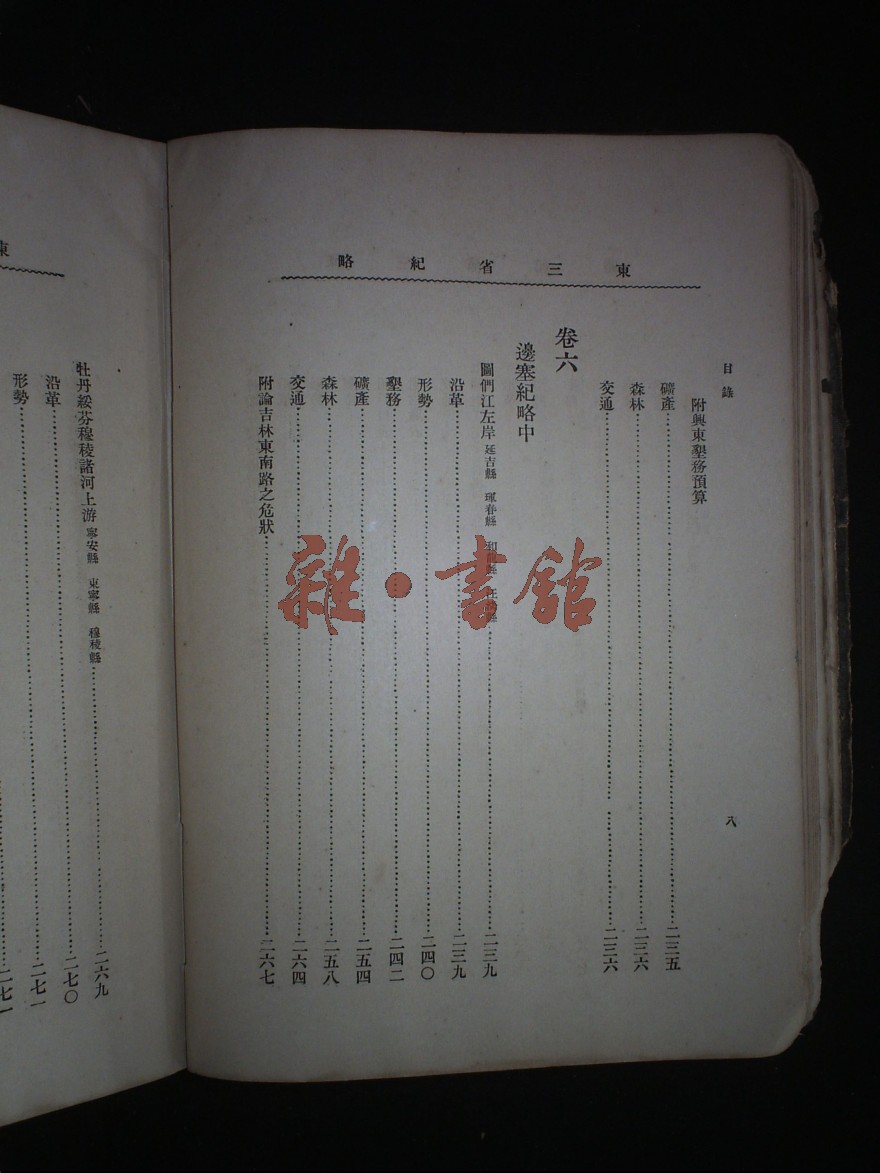 東三省紀略
目錄
八
附興東墾務預算
礦產 二三五
森林 二三六
交通 二三六
卷六
邊塞紀略中
圖們江左岸 延吉縣 琿春縣 和龍縣 汪清縣 二三九
沿革 二三九
形勢 二四〇
墾務 二四二
礦產 二五四
森林 二五八
交通 二六四
附論吉林東南路之危狀 二六七
東
牡丹綏芬穆稜諸河上游 寧安縣 東寧縣 穆稜縣 二六九
沿革 二七〇
形勢 二七一
二七一
雜·書館